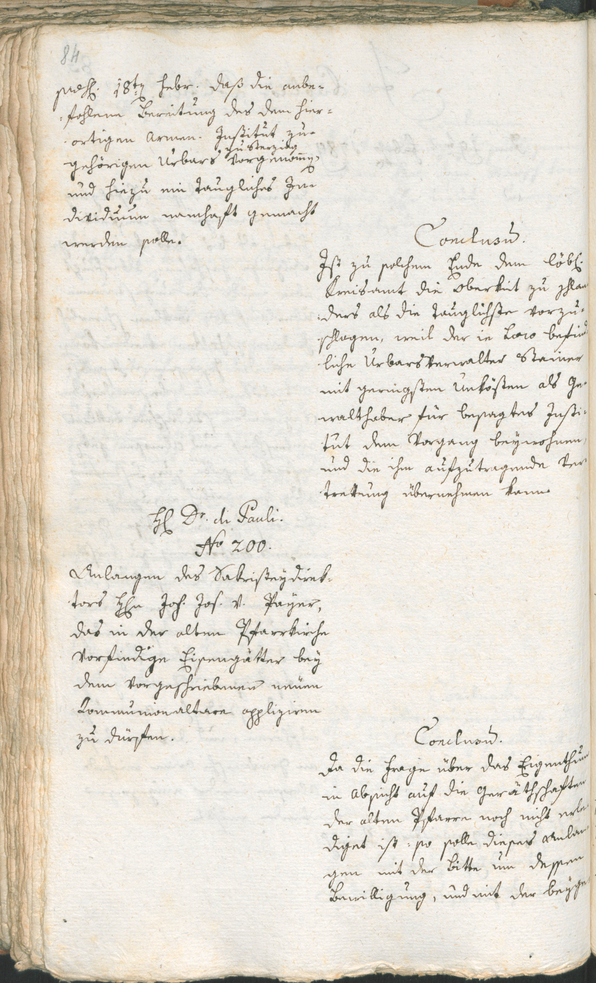 84
präs. 18ten Febr. daß die anbe-
fohlene Bereitung des dem hier-
ortigen Armen-Institut zu-
zu Sterzing
gehörigen Urbars vorgenommen,
und hiezu ein taugliches In-
dividuum namhaft gemacht
werden solle.
Conclusum.
Ist zu solchem Ende dem löbl.
Kreisamt die Oberkeit zu
ders als die tauglichste vorzu-
schlagen, weil der in Loco befind
liche Urbarsverwalter Steiner
mit geringsten Unkösten als Ge-
walthaber für besagtes Insti-
tut dem Vorgang beywohnen,
und die ihm aufzutragende Ver
trettung übernehmen kann.
H. Dr. di Pauli.
No 200.
Anlangen des Sakristeydirek-
tors Hln Joh. Jos. v. Payer,
das in der alten Pfarrkirche
vorfindige Eisengätter bey
dem vorgeschriebenen neuen
Communionaltare appliziren
zu dürfen.
Conclusum.
Da die Frage über das Eigenthum
in Absicht auf die Geräthschaften
der alten Pfarre noch nicht erle
diget ist: so solle dieses Anlan
gen mit der Bitte um dessen
Bewilligung, und mit der beyge